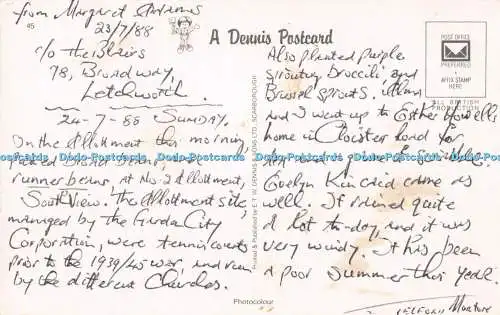 from Margaret Adams
23/7/88
45
A Dennis Postcard
c/o The Blairs
78, Broadway,
Letchworth.
24-7-88 SUNDAY
On the Allotment this morning,
picked and
runner beans, at No. 2 Allotment,
South View. The Allotment site,
managed by the Garden City
Corporation, were tennis courts
prior to the 1939/45 war, and run
by the different Churches.
Printed & Published by E.T.W. DENNIS & SONS LTD., SCARBOROUGH
Photocolour
POST OFFICE
PREFERRED
AFFIX STAMP
HERE
ALL BRITISH
PRODUCTION
Also planted purple
sprouting broccili and
Brussel sprouts.
and I went up to Esther Howells
home in Cloister Road for
a game of Scrabble.
Evelyn Kincaid came as
well. It rained quite
a lot to-day, and it was
very windy. It has been
a poor summer this year.
Dodo Postcards Dodo Postcards Dodo Postcards